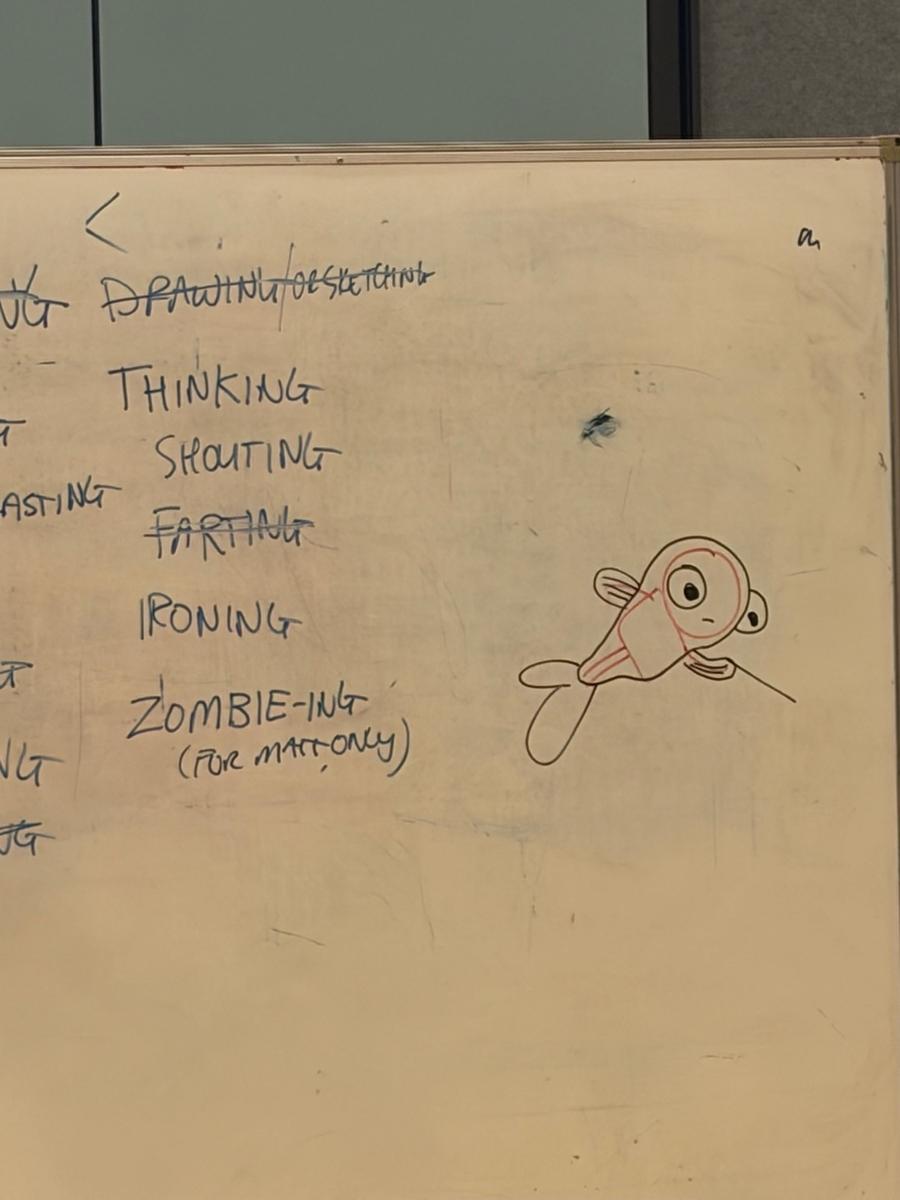 <
DRAWING/OR SKETCHING
THINKING
SHOUTING
ASTING
FARTING
IRONING
ZOMBIE-ING
(FOR MATT ONLY)
NG